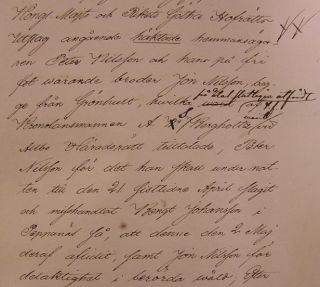 Kongl Maj:ts och Rikets Götha Hofrätts
Utslag angående häktade hemmansäga-
ren Peter Nilsson och hans på fri
fot warande broder Jon Nilsson, beg-
ge från Grönhult, hwilka
Kronolänsmannen A. Bergholtz, wid
Albo Häradsrätt tilltalade, Peter
Nilsson för det han skall under nat-
ten till den 21 sistledne April slagit
och misshandlat Bengt Johansson i
så, att denne den 2 Maj
deraf aflidit, samt Jon Nilsson för
delaktighet i berörda wåld; Efter